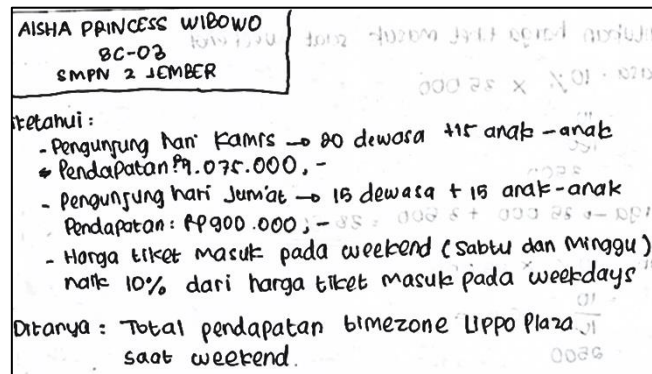 AISHA PRINCESS WIBOWO
8C-03
SMPN 2 JEMBER
iketahui :
- Pengunjung hari Kamis → 20 dewasa +15 anak-anak
• Pendapatan : Rp1.075.000,-
- Pengunjung hari Jum'at → 15 dewasa + 15 anak-anak
Pendapatan : RP900.000,-
- Harga tiket masuk pada weekend (Sabtu dan Minggu)
naik 10% dari harga tiket masuk pada weekdays
Ditanya : Total pendapatan timezone Lippo Plaza
saat weekend.